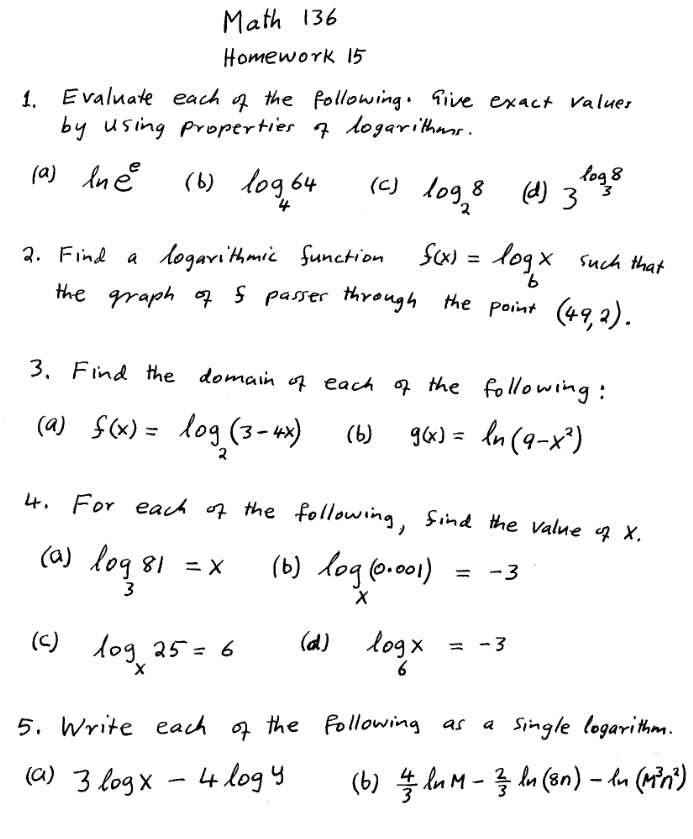 Math 136
Homework 15
1. Evaluate each of the following. Give exact values
by using properties of logarithms.
(a) ln e^e (b) log_4 64 (c) log_2 8 (d) 3^(log_3 8)
2. Find a logarithmic function f(x) = log_b x such that
the graph of f passes through the point (49,2).
3. Find the domain of each of the following:
(a) f(x) = log_2 (3-4x) (b) g(x) = ln (9-x²)
4. For each of the following, find the value of x.
(a) log_3 81 = x (b) log_x (0.001) = -3
(c) log_x 25 = 6 (d) log_6 x = -3
5. Write each of the following as a single logarithm.
(a) 3 log x - 4 log y (b) 4/3 ln M - 2/3 ln (8n) - ln (M³n²)